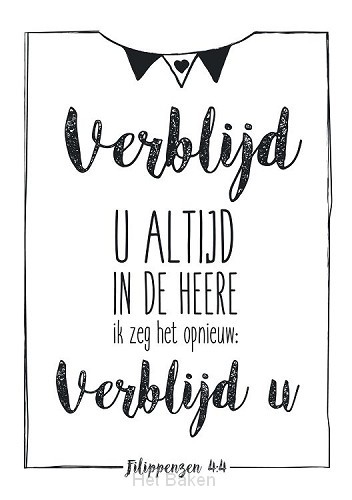 Verblijd
U ALTIJD
IN DE HEERE
ik zeg het opnieuw:
Verblijd u
Filippenzen 4:4
Het Baken